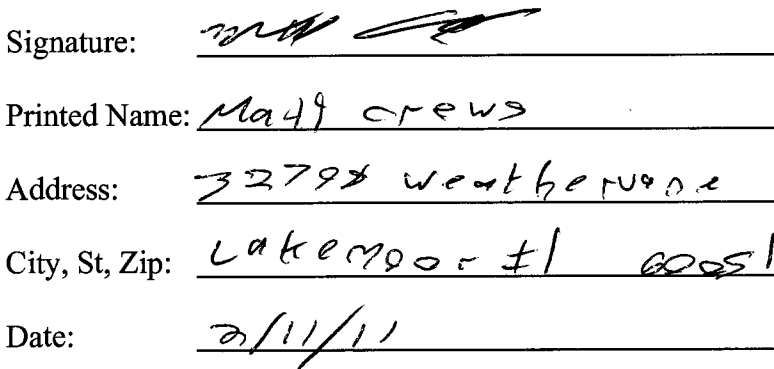 Signature:
Printed Name: Matt crews
Address: 32798 weathervane
City, St, Zip: Lakemoor Il 60051
Date: 2/11/11